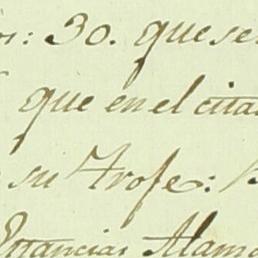 os: 30. que se
que en el cita
su Trofeo:
Estancias Alamo